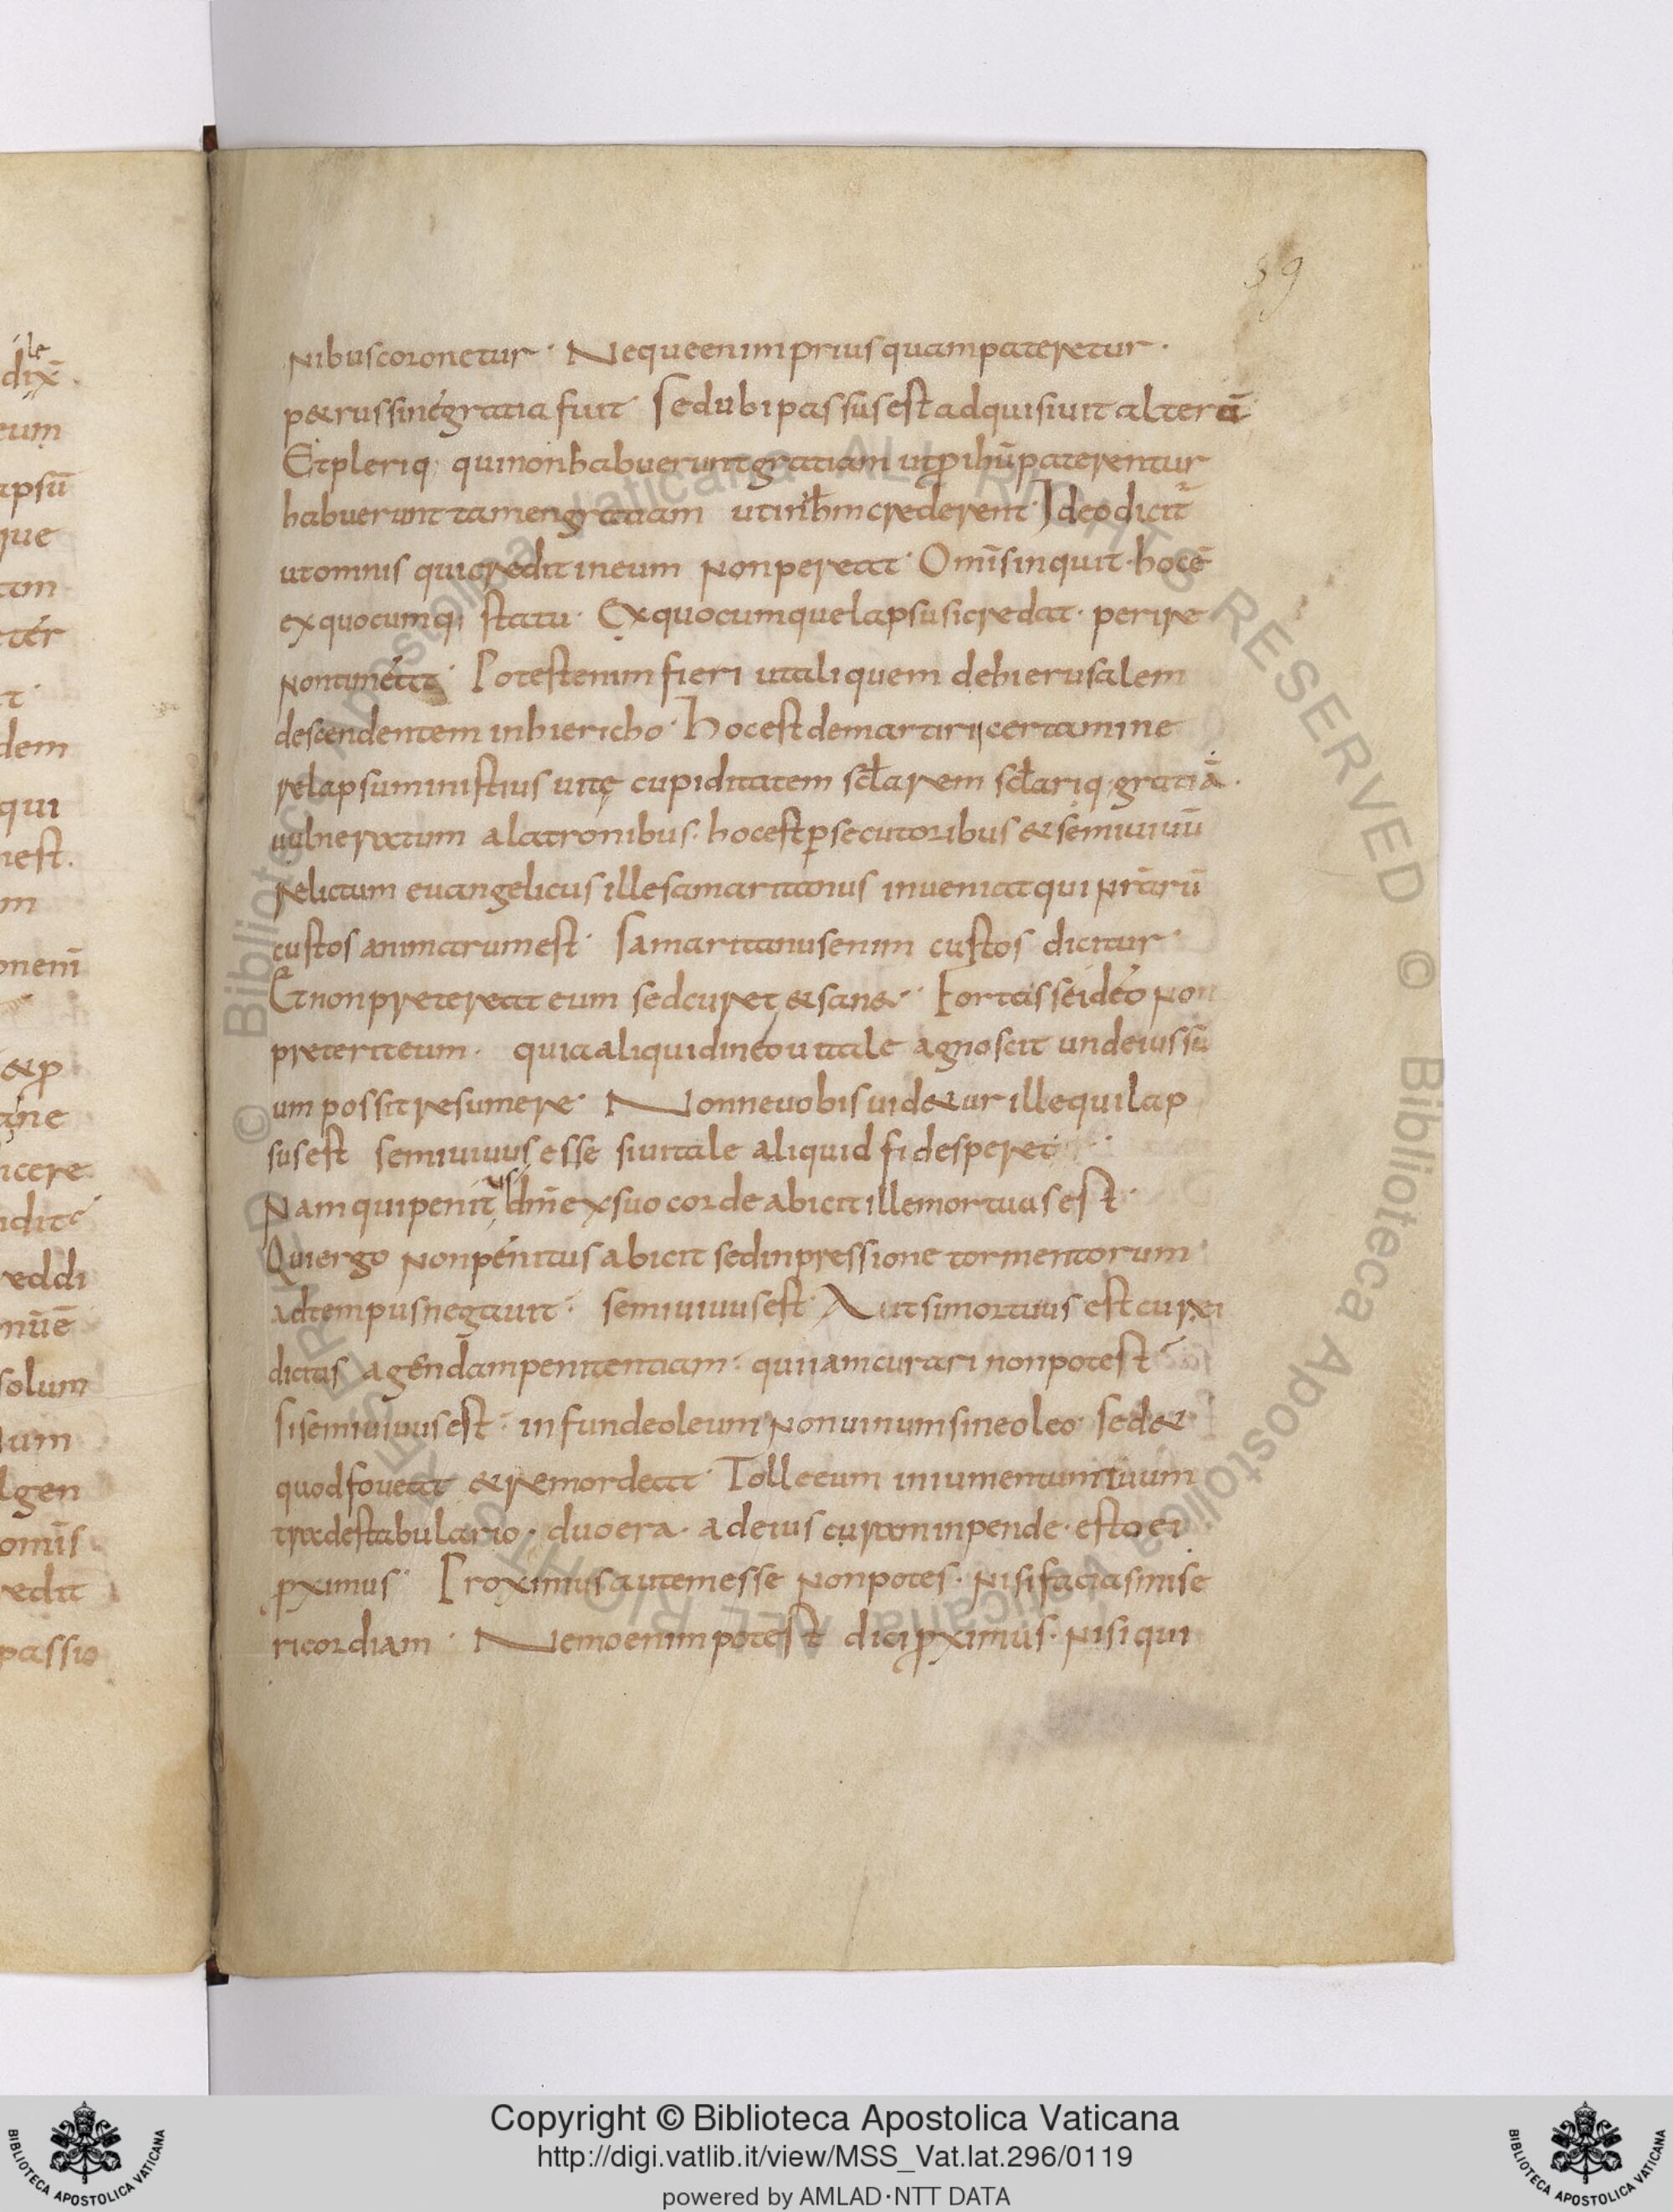 59
nibus coronetur · Neque enim prius quam pateretur ·
p&rus sine gratia fuit Sed ubi passus est adquisiuit alterā
Et pleriq; qui non habuerunt gratiam ut ꝓ ihū paterentur
habuerunt tamen gratiam ut in crederent · Ideo dicit
ut omnis qui credit in eum non pereat · Omīs inquit · hoc ē
ex quocumq; statu · Ex quocumque lapsu si credat · perire
non timeat · Potest enim fieri ut aliquem de hierusalem
descendentem in hiericho · hoc est de martirii certamine
relapsum in istius uitę cupiditatem sclarem sclariq; gratiā ·
uulneratum a latronibus · hoc est ꝑsecutoribus & semiuiuū
relictum euangelicus ille samaritanus inueniat qui nrārū
custos animarum est · Samaritanus enim custos dicitur ·
Et non pretereat eum sed curet & san& · Fortasse ideo non
preterit eum · quia aliquid in eo uitale agnoscit unde iussū
um possit resumere · Nonne uobis uid&ur ille qui lap
sus est semiuiuus esse si uitale aliquid fides peret
Nam qui penitus dn̄m ex suo corde abicit ille mortuus est ·
Qui ergo non penitus abicit sed in pressione tormentorum ·
ad tempus negauit · semiuiuus est · Aut si mortuus est cur ei
dicitis agendam penitentiam · qui iam curari non potest
si semiuiuus est · infunde oleum non uinum sine oleo sed &
quod foueat & remordeat · Tolle eum in iumentum tuum
trade stabulario · duo era · ad eius curam inpende · esto ei
ꝓximus · Proximus autem esse non potes · nisi facias mise
ricordiam · Nemo enim potest dici ꝓximus · nisi qui
le
dix̄ ·
eum
apsū
que
tam
ter
dem
qui
nest ·
m
onem
&ꝓ
icere
reddi
solum
um
lgen
omīs
redit
passio
© Biblioteca Apostolica Vaticana ALL RIGHTS RESERVED
© Biblioteca Apostolica Vaticana ALL RIGHTS RESERVED
Copyright © Biblioteca Apostolica Vaticana
http://digi.vatlib.it/view/MSS_Vat.lat.296/0119
powered by AMLAD·NTT DATA
BIBLIOTECA APOSTOLICA VATICANA
BIBLIOTECA APOSTOLICA VATICANA